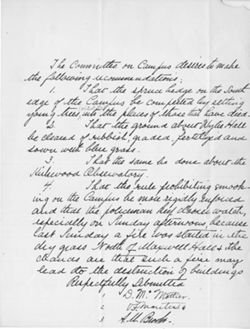 The Committee on Campus desires to make
the following recommendations:
1. That the spruce hedge on the South
edge of the Campus be completed by setting
young trees into the places of those that have died.
2. That the ground about Wylie Hall
be cleared of rubbish, graded, fertilized and
sown with blue grass.
3. That the same be done about the
Kirkwood Observatory.
4. That the rule prohibiting smok-
ing on the Campus be more rigidly enforced
and that the policeman keep closer watch,
especially on Sunday afternoons, because
last Sunday a fire was started in the
dry grass North of Maxwell Hall & the
chances are that such a fire may
lead to the destruction of buildings
Respectfully Submitted
D. M. Mottier
A. M. Brooks.